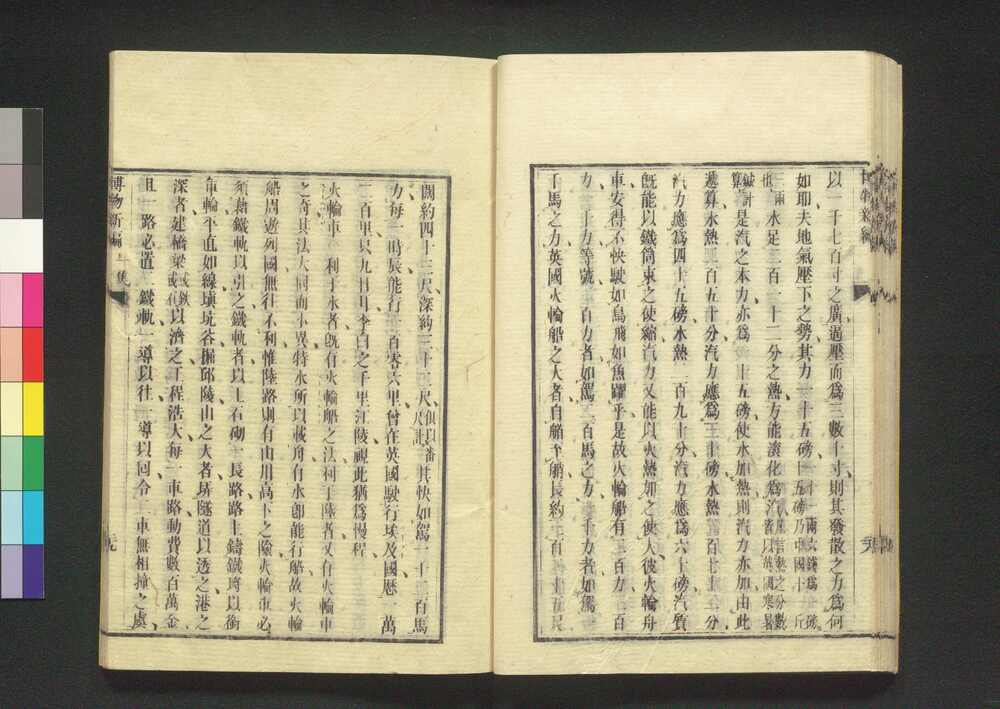 以一千七百寸之廣逼壓而爲三數十寸則其發散之力爲何
如耶夫地氣壓下之勢其力十五磅
水足二百一十二分之熱方能演化爲汽
是汽之本力亦爲十五磅使水加熱則汽力亦加由此
遞算水熱二百五十分汽力應爲三十磅水熱二百七十分
汽力應爲四十五磅水熱二百九十分汽力應爲六十磅汽質
既能以鐵筒束之使縮汽力又能以火熱加之使大彼火輪舟
車安得不快駛如鳥飛如魚躍乎是故火輪船有二百力三百
力 十力等號 百力者如駕二百馬之力 十力者如駕
千馬之力英國火輪船之大者自船至艄長約三百 十五尺
闊約四十三尺深約三十 尺 俱以番尺計 其快如駕一千三百馬
力每一時辰能行 百零六里曾在英國駛行埃及國歷一萬
二百里只九日耳李白之千里江陵視此猶爲慢程
火輪車 利于水者既有火輪船之法利于陸者又有火輪車
之奇其法大同而小異特水所以載舟有水卽能行船故火輪
船周遊列國無往不利惟陸路則有山川高下之險火輪車必
須藉鐵軌以引之鐵軌者以土石砌一長路路上鑄鐵 以銜
車輪平直如線填坑谷掘邱陵山之大者 隧道以透之港之
深者建橋梁 以濟之工程浩大每一車路動費數百萬金
且一路必置 鐵軌一導以往一導以回令 車無相撞之虞
博物新編 上集